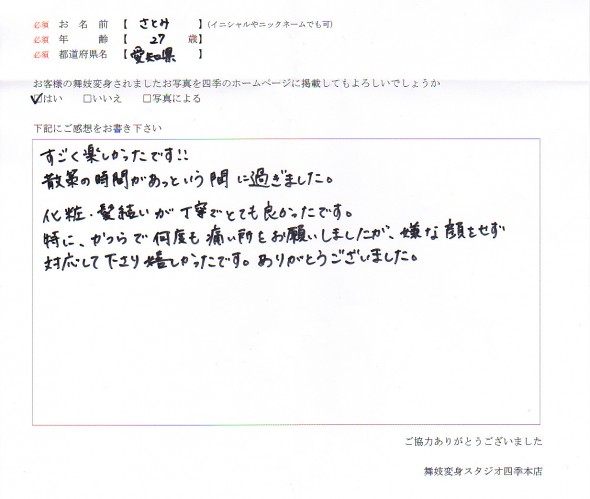 必須 お名前 【 さとみ 】(イニシャルやニックネームでも可)
必須 年齢 【 27 歳】
必須 都道府県名 【 愛知県 】
お客様の舞妓変身されましたお写真を四季のホームページに掲載してもよろしいでしょうか
☑はい □いいえ □写真による
下記にご感想をお書き下さい
すごく楽しかったです!!
散策の時間があっという間に過ぎました。
化粧・髪結いが丁寧でとても良かったです。
特に、かつらで何度も痛い所をお願いしましたが、嫌な顔をせず
対応して下さり嬉しかったです。ありがとうございました。
ご協力ありがとうございました
舞妓変身スタジオ四季本店